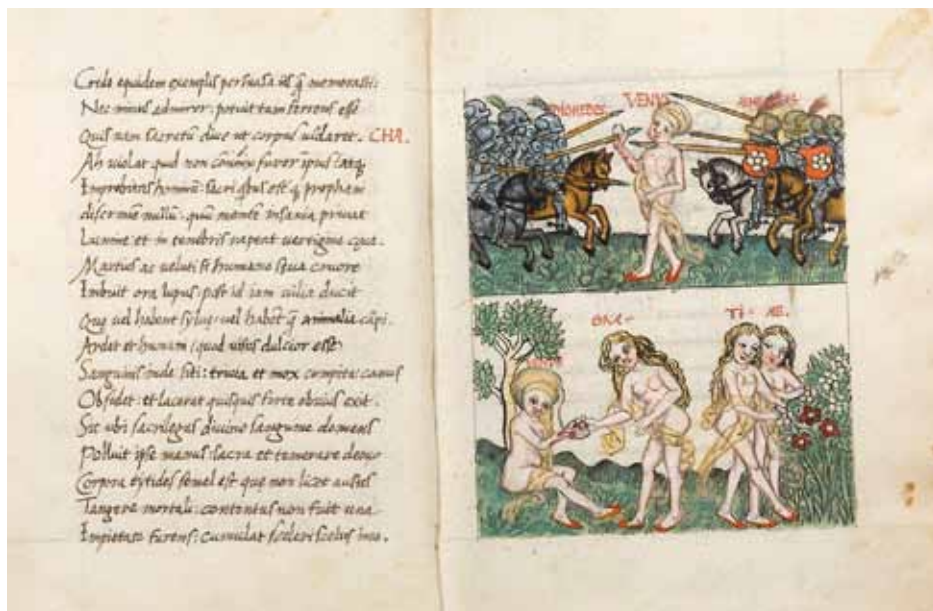 Credo equidem exemplis persuasa iis q̃ memorasti:
Nec minus admiror: potuit tam ferreus esse
Quis nam sacratũ dive ut corpus violaret. CHA.
Ah violat quid non furor atq
Improbitas hominũ: sacri est q prophani
discrimen nullũ: quũ mente insania privat
Lumine et in tenebris rapeat vertigine ceca.
Martius ac veluti si humano cruore
Imbuit ora lupus: post id iam vilia ducit
Que vel habent sylve: vel habẽt q̃ animalia cãpi.
Ardet et humani: quod visus dulcior esse
Sanguinis inde siti: et mox compita
Obsidet: et lacerat quisquis forte obvius exit.
Sic ubi sacrilegas divino sanguine demens
Polluit ipse manus: sacra et temerare deorum
Corpora tytides semel est que non licet ausus
Tangere mortali: contentus non fuit una
Impietate furens: cumulat sceleri scelus
DIOMEDES VENUS
GRA- TI- AE.